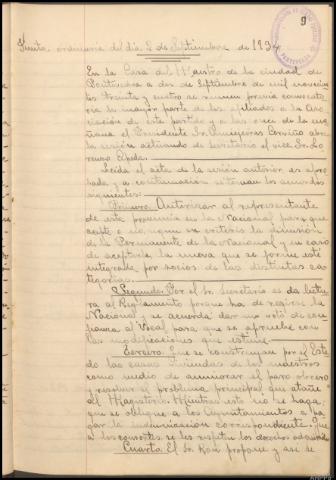 9
Junta ordinaria del día 2 de Septiembre de 1934
En la Casa del Maestro de la ciudad de
Pontevedra a dos de septiembre de mil novecien
tos treinta y cuatro se reunen previa convocato
ria la mayor parte de los afiliados a la Aso
ciación de este partido y a las once de la ma
ñana el Presidente Sr. Junquera abre
la sesión actuando de Secretario el vice Sr. Lo
renzo
Leída el acta de la sesión anterior es apro
bada y a continuación se toman los acuerdos
siguientes:
Primero. Autorizar al representante
de esta provincia en la Nacional para que
acepte o no, según su criterio la dimisión
de la Permanente de la Nacional y en caso
de aceptarla, la nueva que se forme esté
integrada por socios de las distintas ca
tegorías.
Segundo. Por el Sr. Secretario se da lectu
ra al Reglamento porque ha de regirse la
Nacional y se acuerda dar un voto de con
fianza al Vocal para que se apruebe con
las modificaciones que estime
Tercero. Que se construyan por el Esta
do las casas viviendas de los maestros
como medio de aminorar el paro obrero
y resolver el problema principal que atañe
al Magisterio. Mientras esto no se haga,
que se obligue a los Ayuntamientos a pa
gar la indemnización correspondiente. Que
a los consortes se les respeten los derechos adquiridos
Cuarto. El Sr. propone y así se